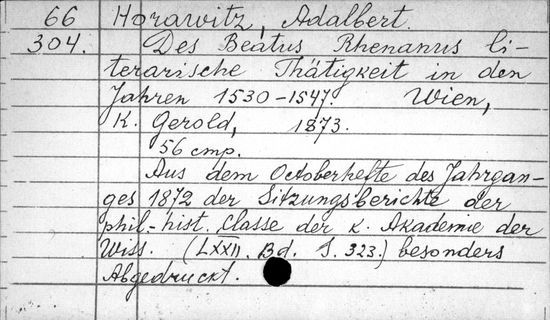 66 Horawitz, Adalbert.
304. Des Beatus Rhenanus li-
terarische Thätigkeit in den
Jahren 1530-1547. Wien,
K. Gerold, 1873.
56 стр.
Aus dem Octoberhefte des Jahrgan-
ges 1872 der Sitzungsberichte der
phil.-hist. Classe der k. Akademie der
Wiss. (LXXII. Bd. S. 323.) besonders
Abgedruckt.